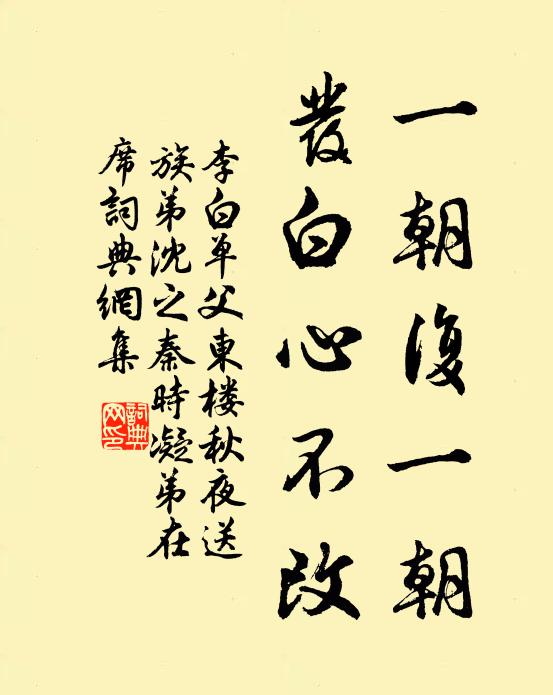 一朝復一朝
發白心不改
李白单父東楼秋夜送
族弟沈之秦時凝弟在
席詞典網集
詞典网印